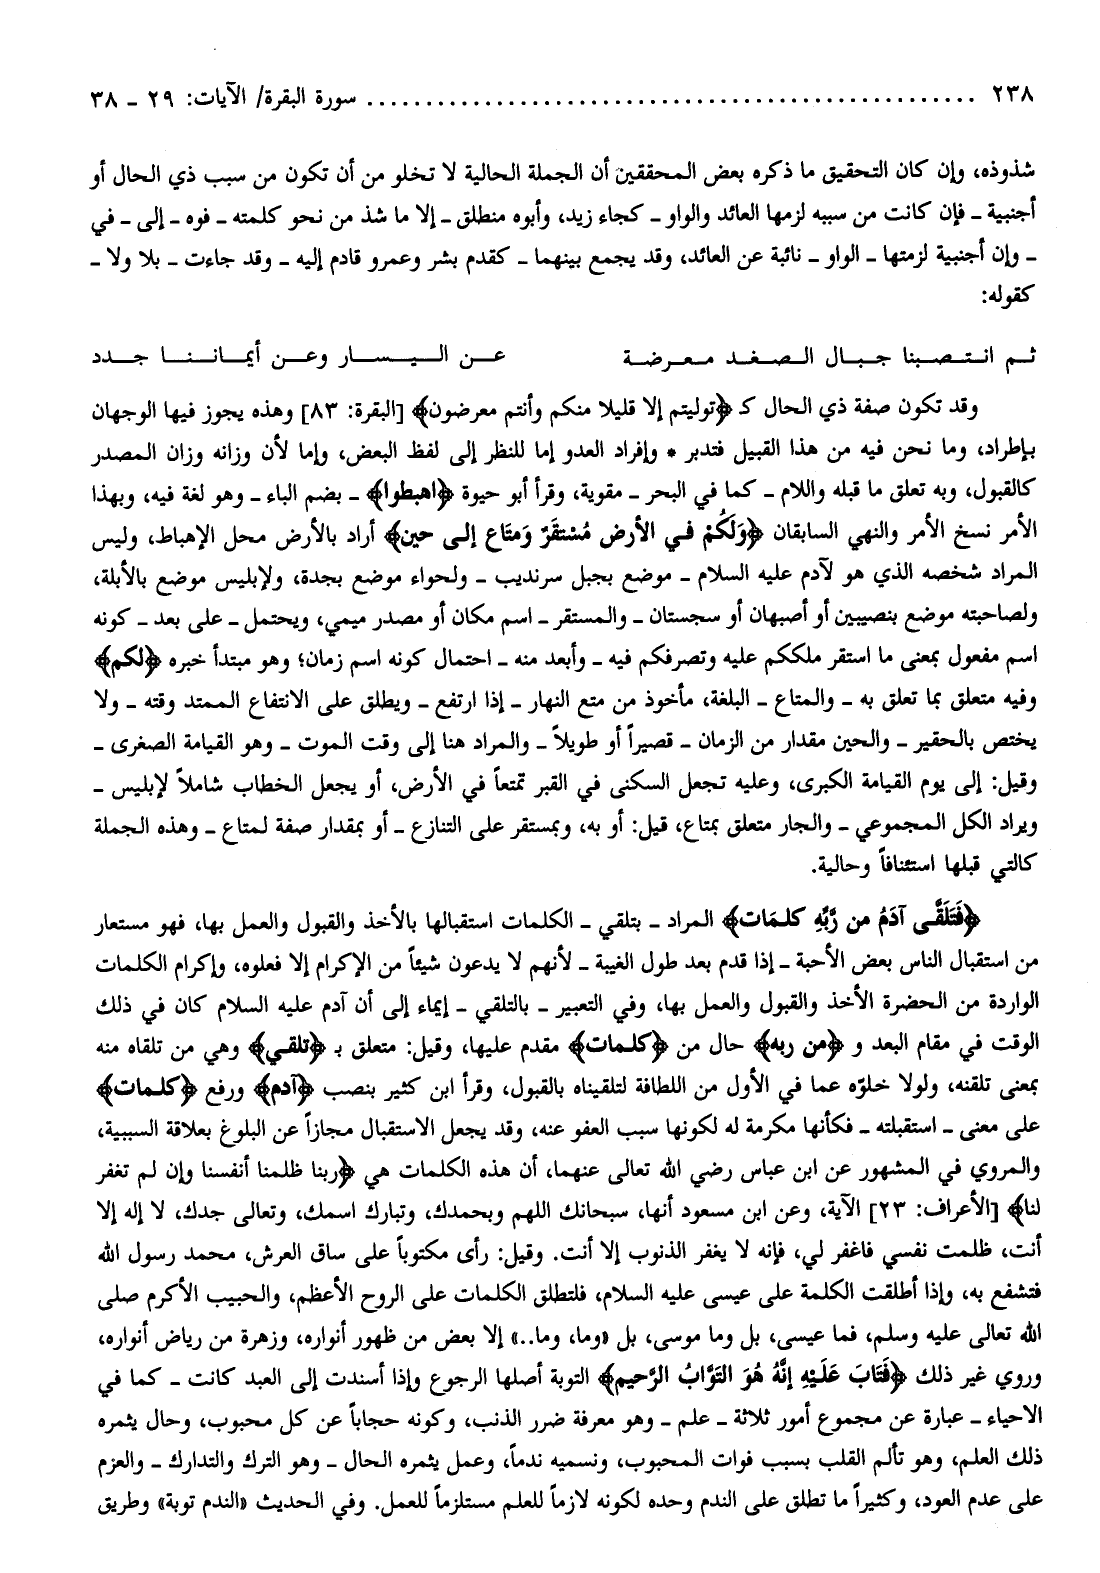 ٢٣٨ .................................................. سورة البقرة/ الآيات: ٢٩ ـ ٣٨
شذوذه، وإن كان التحقيق ما ذكره بعض المحققين أن الجملة الحالية لا تخلو من أن تكون من سبب ذي الحال أو
أجنبية ـ فإن كانت من سببه لزمها العائد والواو ـ كجاء زيد، وأبوه منطلق ـ إلا ما شذ من نحو كلمته ـ فوه ـ إلى ـ في
ـ وإن أجنبية لزمتها ـ الواو ـ نائبة عن العائد، وقد يجمع بينهما ـ كقدم بشر وعمرو قادم إليه ـ وقد جاءت ـ بلا ولا ـ
كقوله:
ثم انتصبنا جبال الصغد معرضة عن اليسار وعن أيماننا جدد
وقد تكون صفة ذي الحال كـ ﴿توليتم إلا قليلا منكم وأنتم معرضون﴾ [البقرة: ٨٣] وهذه يجوز فيها الوجهان
بإطراد، وما نحن فيه من هذا القبيل فتدبر * وإفراد العدو إما للنظر إلى لفظ البعض، وإما لأن وزانه وزان المصدر
كالقبول، وبه تعلق ما قبله واللام ـ كما في البحر ـ مقوية، وقرأ أبو حيوة ﴿اهبطوا﴾ ـ بضم الباء ـ وهو لغة فيه، وبهذا
الأمر نسخ الأمر والنهي السابقان ﴿وَلَكُمْ في الأرض مُسْتقَرٌ وَمتَاع إلى حين﴾ أراد بالأرض محل الإهباط، وليس
المراد شخصه الذي هو لآدم عليه السلام ـ موضع بجبل سرنديب ـ ولحواء موضع بجدة، ولإبليس موضع بالأبلة،
ولصاحبته موضع بنصيبين أو أصبهان أو سجستان ـ والمستقر ـ اسم مكان أو مصدر ميمي، ويحتمل ـ على بعد ـ كونه
اسم مفعول بمعنى ما استقر ملككم عليه وتصرفكم فيه ـ وأبعد منه ـ احتمال كونه اسم زمان؛ وهو مبتدأ خبره ﴿لكم﴾
وفيه متعلق بما تعلق به ـ والمتاع ـ البلغة، مأخوذ من متع النهار ـ إذا ارتفع ـ ويطلق على الانتفاع الممتد وقته ـ ولا
يختص بالحقير ـ والحين مقدار من الزمان ـ قصيراً أو طويلاً ـ والمراد هنا إلى وقت الموت ـ وهو القيامة الصغرى ـ
وقيل: إلى يوم القيامة الكبرى، وعليه تجعل السكنى في القبر تمتعاً في الأرض، أو يجعل الخطاب شاملاً لإبليس ـ
ويراد الكل المجموعي ـ والجار متعلق بمتاع، قيل: أو به، وبمستقر على التنازع ـ أو بمقدار صفة لمتاع ـ وهذه الجملة
كالتي قبلها استئنافاً وحالية.
﴿فَتَلَقَّى آدَمُ من رَبِّهِ كلمَات﴾ المراد ـ بتلقي ـ الكلمات استقبالها بالأخذ والقبول والعمل بها، فهو مستعار
من استقبال الناس بعض الأحبة ـ إذا قدم بعد طول الغيبة ـ لأنهم لا يدعون شيئاً من الإكرام إلا فعلوه، وإكرام الكلمات
الواردة من الحضرة الأخذ والقبول والعمل بها، وفي التعبير ـ بالتلقي ـ إيماء إلى أن آدم عليه السلام كان في ذلك
الوقت في مقام البعد و ﴿من ربه﴾ حال من ﴿كلمات﴾ مقدم عليها، وقيل: متعلق بـ ﴿تلقي﴾ وهي من تلقاه منه
بمعنى تلقنه، ولولا خلوّه عما في الأول من اللطافة لتلقيناه بالقبول، وقرأ ابن كثير بنصب ﴿آدم﴾ ورفع ﴿كلمات﴾
على معنى ـ استقبلته ـ فكأنها مكرمة له لكونها سبب العفو عنه، وقد يجعل الاستقبال مجازاً عن البلوغ بعلاقة السببية،
والمروي في المشهور عن ابن عباس رضي الله تعالى عنهما، أن هذه الكلمات هي ﴿ربنا ظلمنا أنفسنا وإن لم تغفر
لنا﴾ [الأعراف: ٢٣] الآية، وعن ابن مسعود أنها، سبحانك اللهم وبحمدك، وتبارك اسمك، وتعالى جدك، لا إله إلا
أنت، ظلمت نفسي فاغفر لي، فإنه لا يغفر الذنوب إلا أنت. وقيل: رأى مكتوباً على ساق العرش، محمد رسول الله
فتشفع به، وإذا أطلقت الكلمة على عيسى عليه السلام، فلتطلق الكلمات على الروح الأعظم، والحبيب الأكرم صلى
الله تعالى عليه وسلم، فما عيسى، بل وما موسى، بل «وما، وما..» إلا بعض من ظهور أنواره، وزهرة من رياض أنواره،
وروي غير ذلك ﴿فَتَابَ عَلَيْهِ إنَّهُ هُوَ التَوَّابُ الرَّحيم﴾ التوبة أصلها الرجوع وإذا أسندت إلى العبد كانت ـ كما في
الاحياء ـ عبارة عن مجموع أمور ثلاثة ـ علم ـ وهو معرفة ضرر الذنب، وكونه حجاباً عن كل محبوب، وحال يثمره
ذلك العلم، وهو تألم القلب بسبب فوات المحبوب، ونسميه ندماً، وعمل يثمره الحال ـ وهو الترك والتدارك ـ والعزم
على عدم العود، وكثيراً ما تطلق على الندم وحده لكونه لازماً للعلم مستلزماً للعمل. وفي الحديث «الندم توبة» وطريق